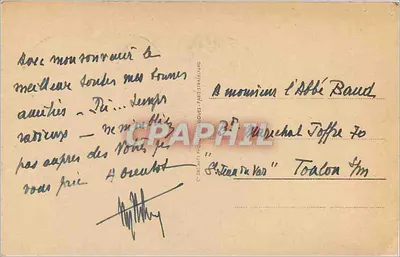 Avec mon souvenir le
meilleur toutes mes bonnes
amitiés - Du... temps
radieux - ne m'oubliez
pas auprès des
vous fais A bientôt
A monsieur l'Abbé Baud
Bd Maréchal Joffre 70
"St Jean du Var" Toulon s/m
CPHARPHIL